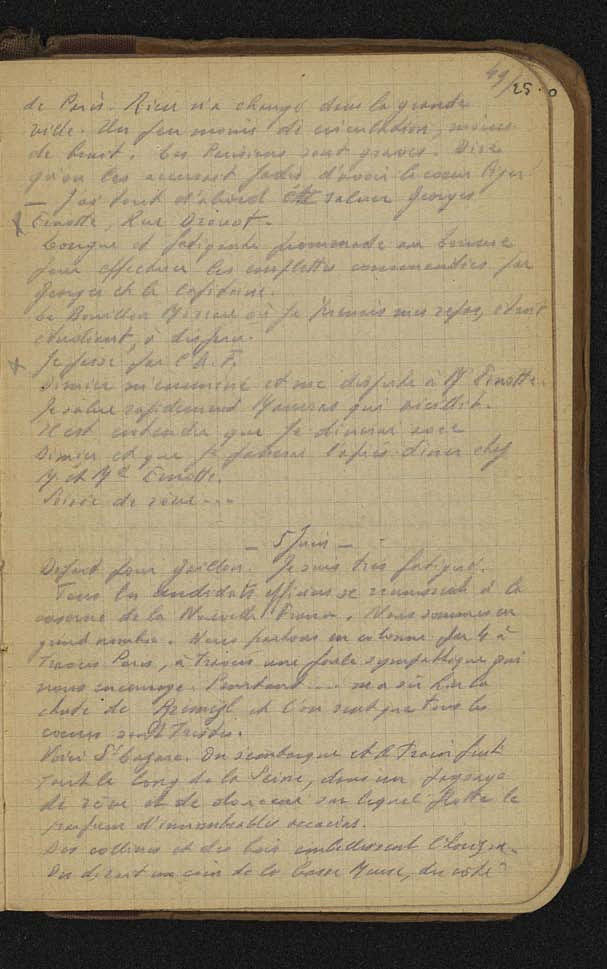 49/25.0
de Paris. Rien n'a changé dans la grande
ville. Un peu moins de circulation, moins
de bruit. Les Parisiens sont graves. Dire
qu'on les accusait jadis d'avoir le coeur léger!
— J'ai tout d'abord été saluer Georges
Rue Drouot.
Longue et fatigante promenade au
pour effectuer les emplettes commandées par
Georges et le capitaine.
Le Bouillon où je prenais mes repas, étant
étudiant, a disparu.
Je passe par l'A. F.
Dimier m'emmène et me dispute à Mr
Je salue rapidement Maurras qui vieillit.
Il est entendu que je dînerai avec
Dimier et que je passerai l'après dîner chez
M et Me
Soirée de rêve ...
— 5 Juin —
Départ pour Gaillon. Je suis très fatigué.
Tous les candidats officiers se réunissent à la
caserne de la Nouvelle France. Nous sommes en
grand nombre. Nous partons en colonne par 4 à
travers Paris, à travers une foule sympathique qui
nous encourage. Pourtant .... on a su hier la
chute de Przemysl et l'on sent que tous les
coeurs sont tristes.
Voici St Lazare. On s'embarque et le train fuit
tout le long de la Seine, dans un paysage
de rêve et de douceur sur lequel flotte le
parfum d'innombrables acacias.
Des collines et des bois embellissent l'horizon.
On dirait un coin de la basse Meuse, du côté